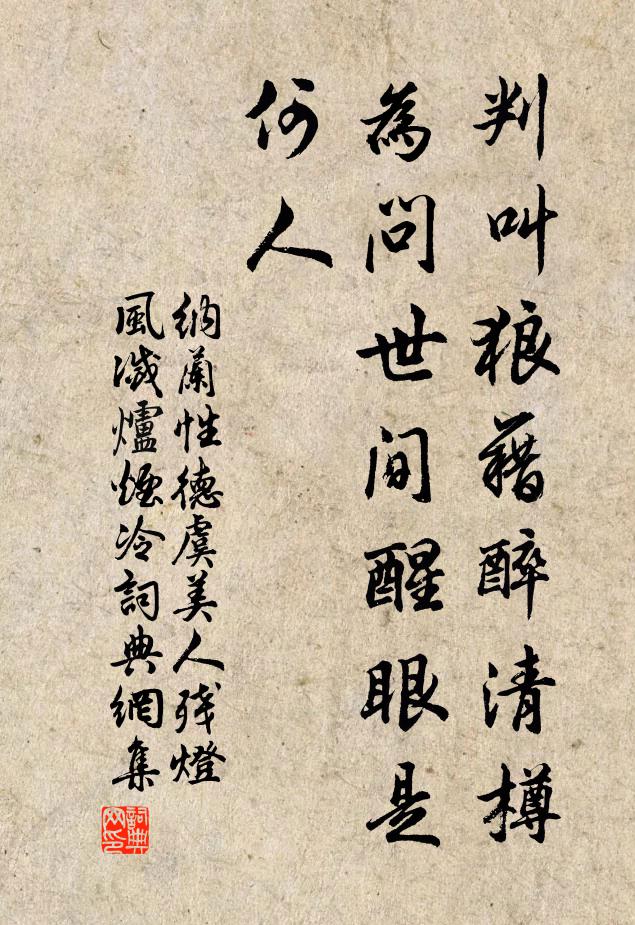 判叫狼藉醉清樽
為問世間醒眼是
何人
納蘭性德虞美人殘燈
風滅爐煙冷詞典網集
詞典
网印